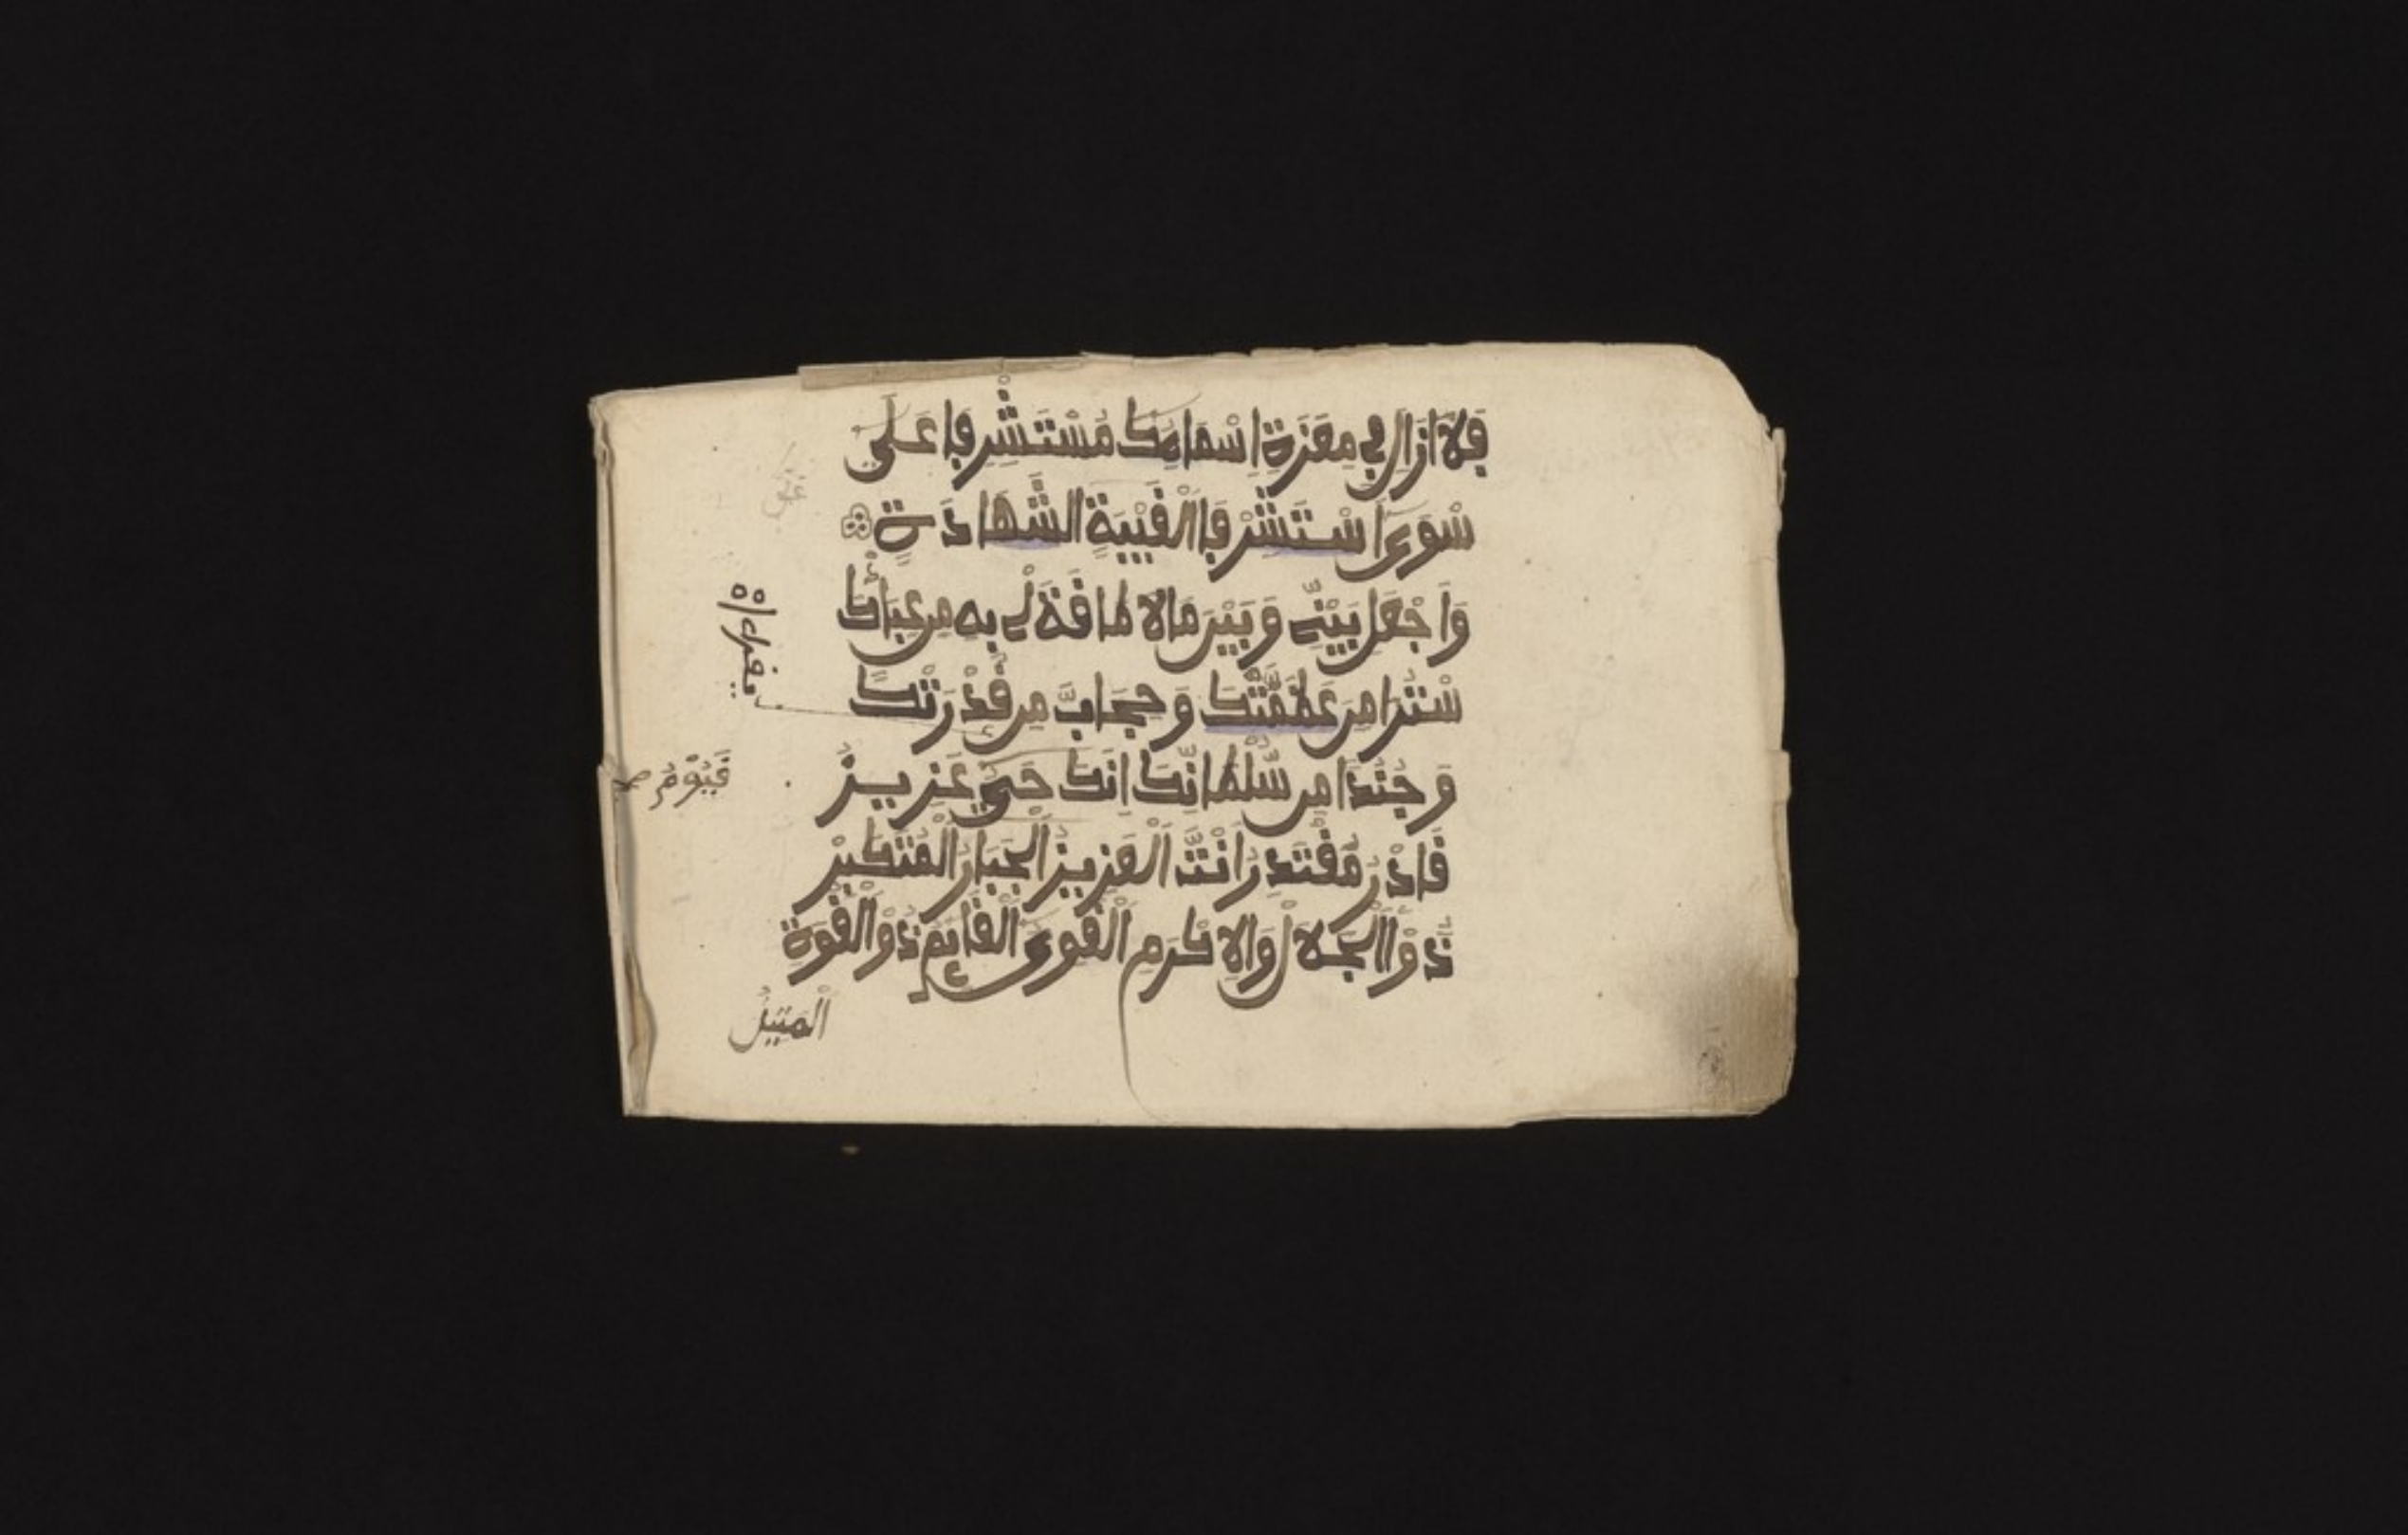 فَلَا ازَال في مِعزَةِ اسْمَايِكَ مُسْتَشْرِفا عَلَى
سْوَى اسْتَشْرَفا الْغَيْبِيَةِ الشَّهَادَةِ
وَاجْعَل بَيْنِي وَبَيْنَ مَالَا طَاقَةَ لِي بِهِ مِن عِبَادِكَ
سْتْرا مِن عَظَمَتِكَ وَحِجَابَ مِن قُدْرَتِكَ
وَجُنْدًا مِن سُّلْطَانِكَ انِكَ حَيٌّ عَزِيزٌ
قَادْر مُقْتَدِر انْتَ الْعَزِيزُ الْجَبَارُ الْمُتَكَبِرْ
ذُوْا الْجَلَالْ وَالاِكْرَمِ الْقَوِى الْقَايِم ذُوْ الْقُوَةِ
الْمَتِينُ
قَيُوْمٌ صح